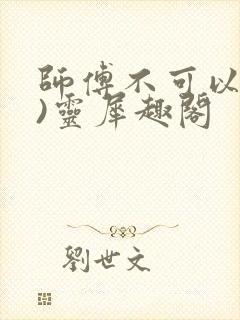 師傅不可以
)靈犀趣閣
劉世文